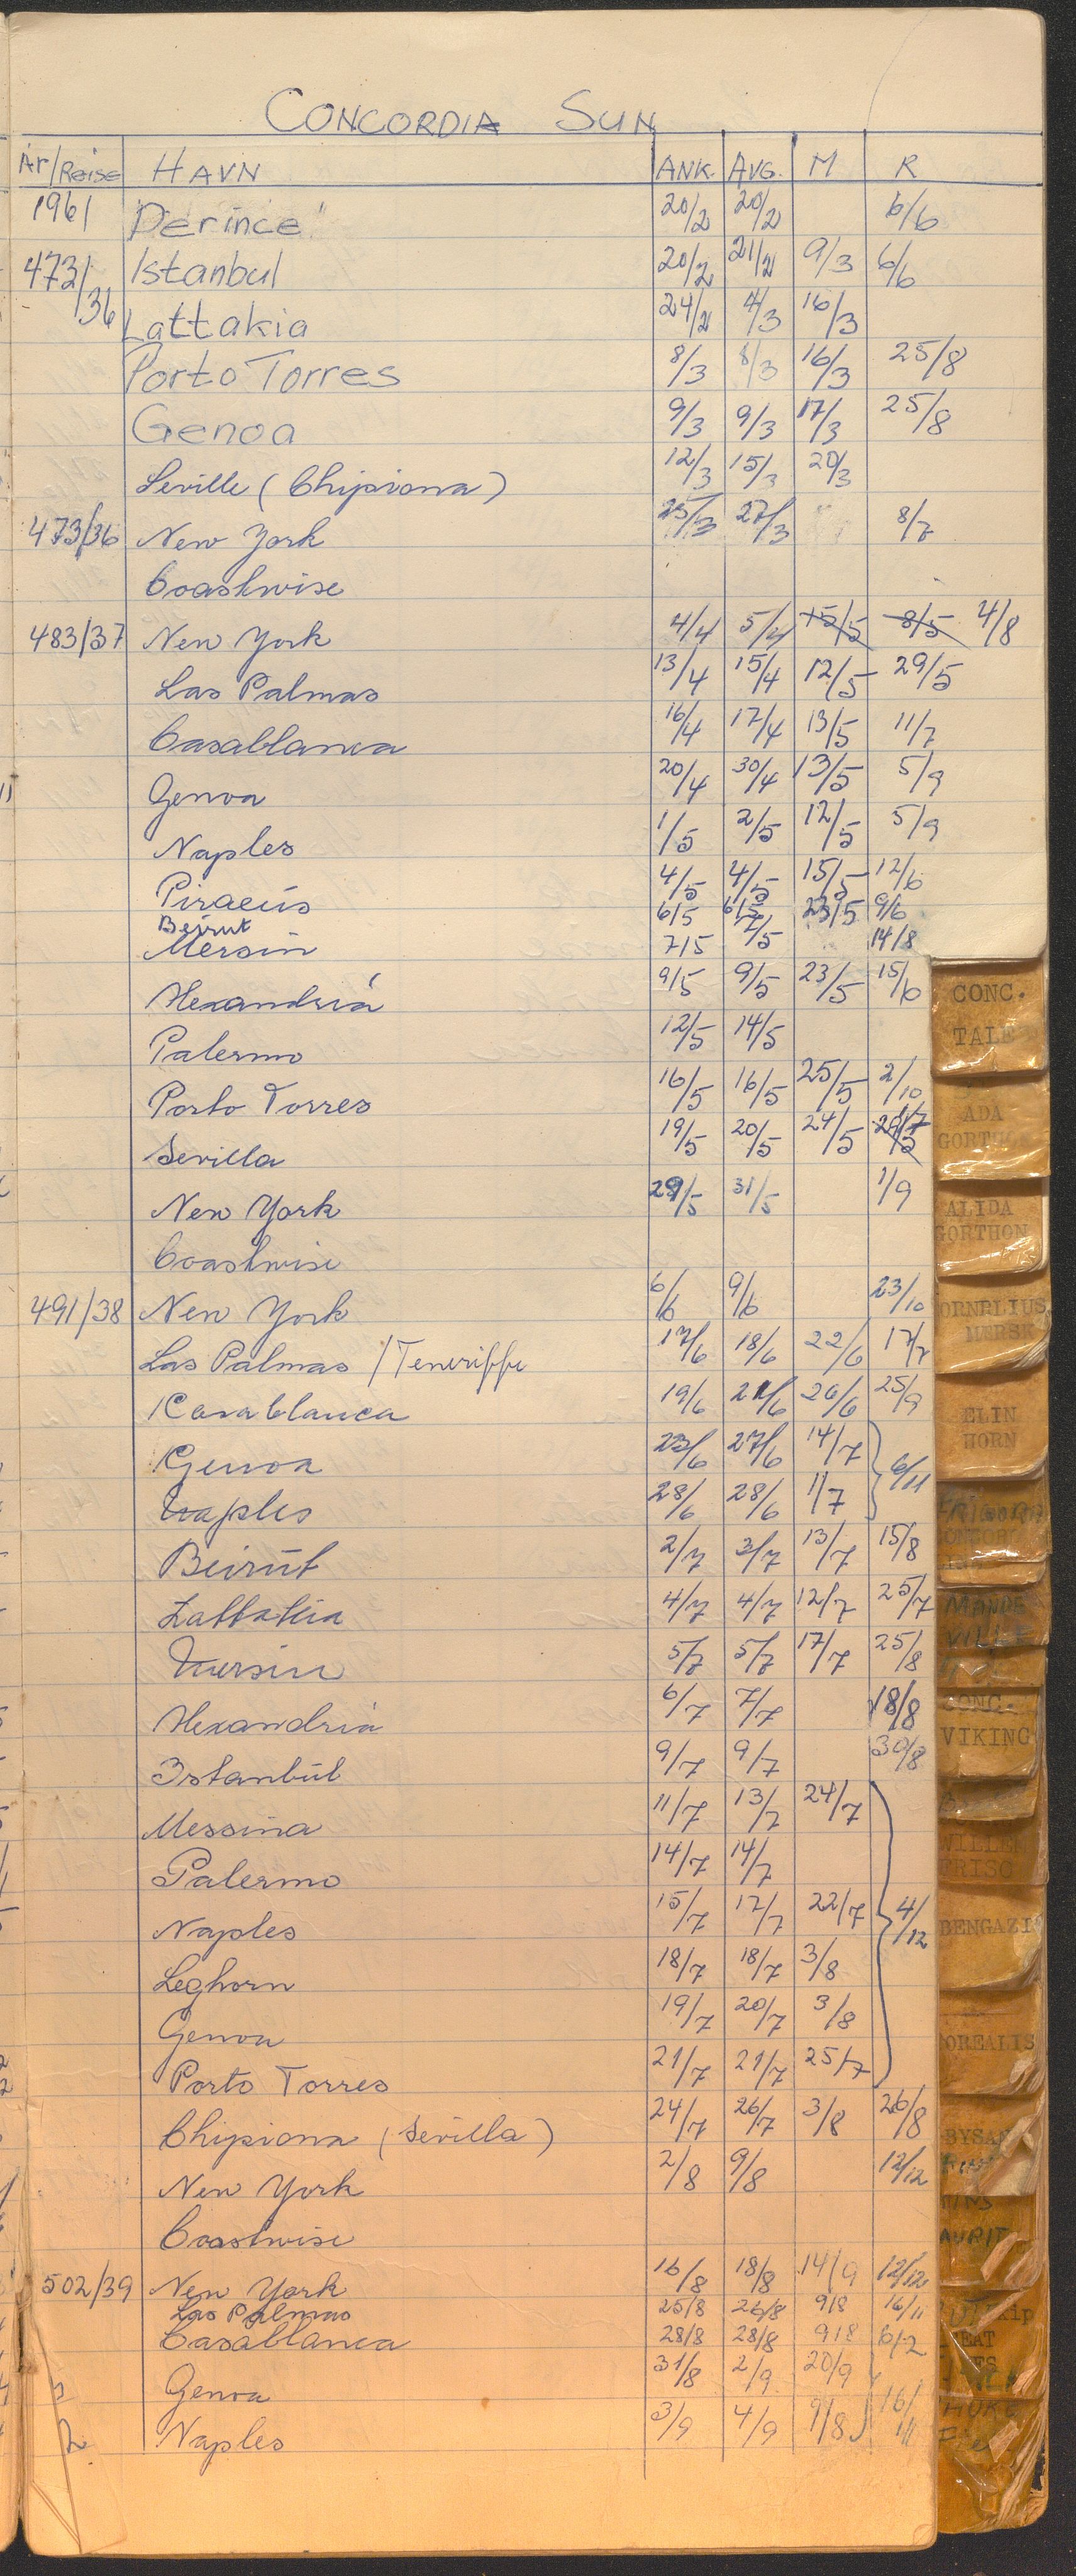 CONCORDIA SUN
År/Reise HAVN ANK. AVG. M R
1961 "Derince" 20/2 20/2 6/6
473/36 Istanbul 20/2 21/2 9/3 6/6
Lattakia 24/2 4/3 16/3
Porto Torres 8/3 8/3 16/3 25/8
Genoa 9/3 9/3 17/3 25/8
Seville (Chipiona) 12/3 15/3 20/3
473/36 New York 25/3 27/3 8/7
Coastwise
483/37 New York 4/4 5/4 15/5 8/5 4/8
Las Palmas 13/4 15/4 12/5 29/5
Casablanca 16/4 17/4 13/5 11/7
Genoa 20/4 30/4 13/5 5/9
Naples 1/5 2/5 12/5 5/9
Piraeus 4/5 4/5 15/5 12/6
Beirut 6/5 6/5 23/5 9/6
Mersin 7/5 7/5 14/8
Alexandria 9/5 9/5 23/5 15/6
Palermo 12/5 14/5
Porto Torres 16/5 16/5 25/5 2/10
Sevilla 19/5 20/5 24/5
New York 29/5 31/5 1/9
Coastwise
491/38 New York 6/6 9/6 23/10
Las Palmas / Teneriffe 17/6 18/6 22/6 17/7
Casablanca 19/6 21/6 26/6 25/9
Genoa 23/6 27/6 14/7
Naples 28/6 28/6 1/7 6/11
Beirut 2/7 3/7 13/7 15/8
Lattakia 4/7 4/7 12/7 25/7
Mersin 5/7 5/7 17/7 25/8
Alexandria 6/7 7/7 18/8
Istanbul 9/7 9/7 30/8
Messina 11/7 13/7 24/7
Palermo 14/7 14/7
Naples 15/7 17/7 22/7 4/12
Leghorn 18/7 18/7 3/8
Genoa 19/7 20/7 3/8
Porto Torres 21/7 21/7 25/7
Chipiona (Sevilla) 24/7 26/7 3/8 26/8
New York 2/8 9/8 12/12
Coastwise
502/39 New York 16/8 18/8 14/9 12/12
Las Palmas 25/8 26/8 9/8 16/11
Casablanca 28/8 28/8 9/8 6/2
Genoa 31/8 2/9 20/9
Naples 3/9 4/9 9/8 16/1
CONC.
TALE
ADA
GORTHON
ALIDA
GORTHON
CORNELIUS
MERSK
ELIN
HORN
MANDE
VILLE
CONC.
VIKING
WILLEM
FRISO
BENGAZI
BOREALIS